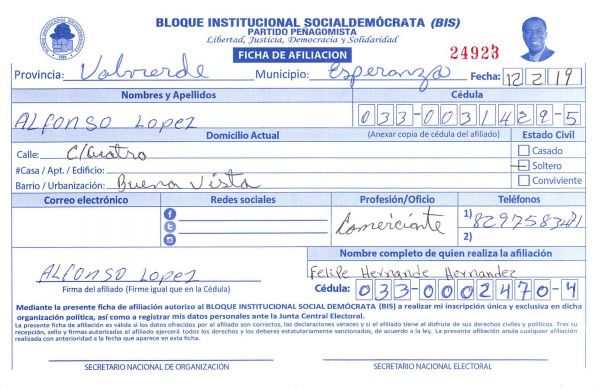 BLOQUE INSTITUCIONAL SOCIALDEMÓCRATA (BIS)
PARTIDO PEÑAGOMISTA
Libertad, Justicia, Democracia y Solidaridad
FICHA DE AFILIACION 24923
Provincia: Valverde Municipio: Esperanza Fecha: 12 2 19
Nombres y Apellidos Cédula
ALFONSO LOPEZ 033-0031429-5
Domicilio Actual (Anexar copia de cédula del afiliado) Estado Civil
Calle: C/Cuatro Casado
#Casa / Apt. / Edificio: Soltero
Barrio / Urbanización: Buena Vista Conviviente
Correo electrónico Redes sociales Profesión/Oficio Teléfonos
Comerciante 1)
2)
Nombre completo de quien realiza la afiliación
ALFONSO LOPEZ Felipe Hernande Hernandez
Firma del afiliado (Firme igual que en la Cédula) Cédula: 033-0002470-4
Mediante la presente ficha de afiliación autorizo al BLOQUE INSTITUCIONAL SOCIAL DEMÓCRATA (BIS) a realizar mi inscripción única y exclusiva en dicha
organización política, así como a registrar mis datos personales ante la Junta Central Electoral.
La presente ficha de afiliación es válida si los datos ofrecidos por el afiliado son correctos, las declaraciones veraces y si el afiliado tiene el disfrute de sus derechos civiles y políticos. Tras su
recepción, sello y firmas autorizadas el afiliado ejercerá todos los derechos y los deberes estatutariamente sancionados, de acuerdo a la ley. La presente afiliación anula cualquier afiliación
realizada con anterioridad a la fecha que aparece en esta ficha.
SECRETARIO NACIONAL DE ORGANIZACIÓN SECRETARIO NACIONAL ELECTORAL